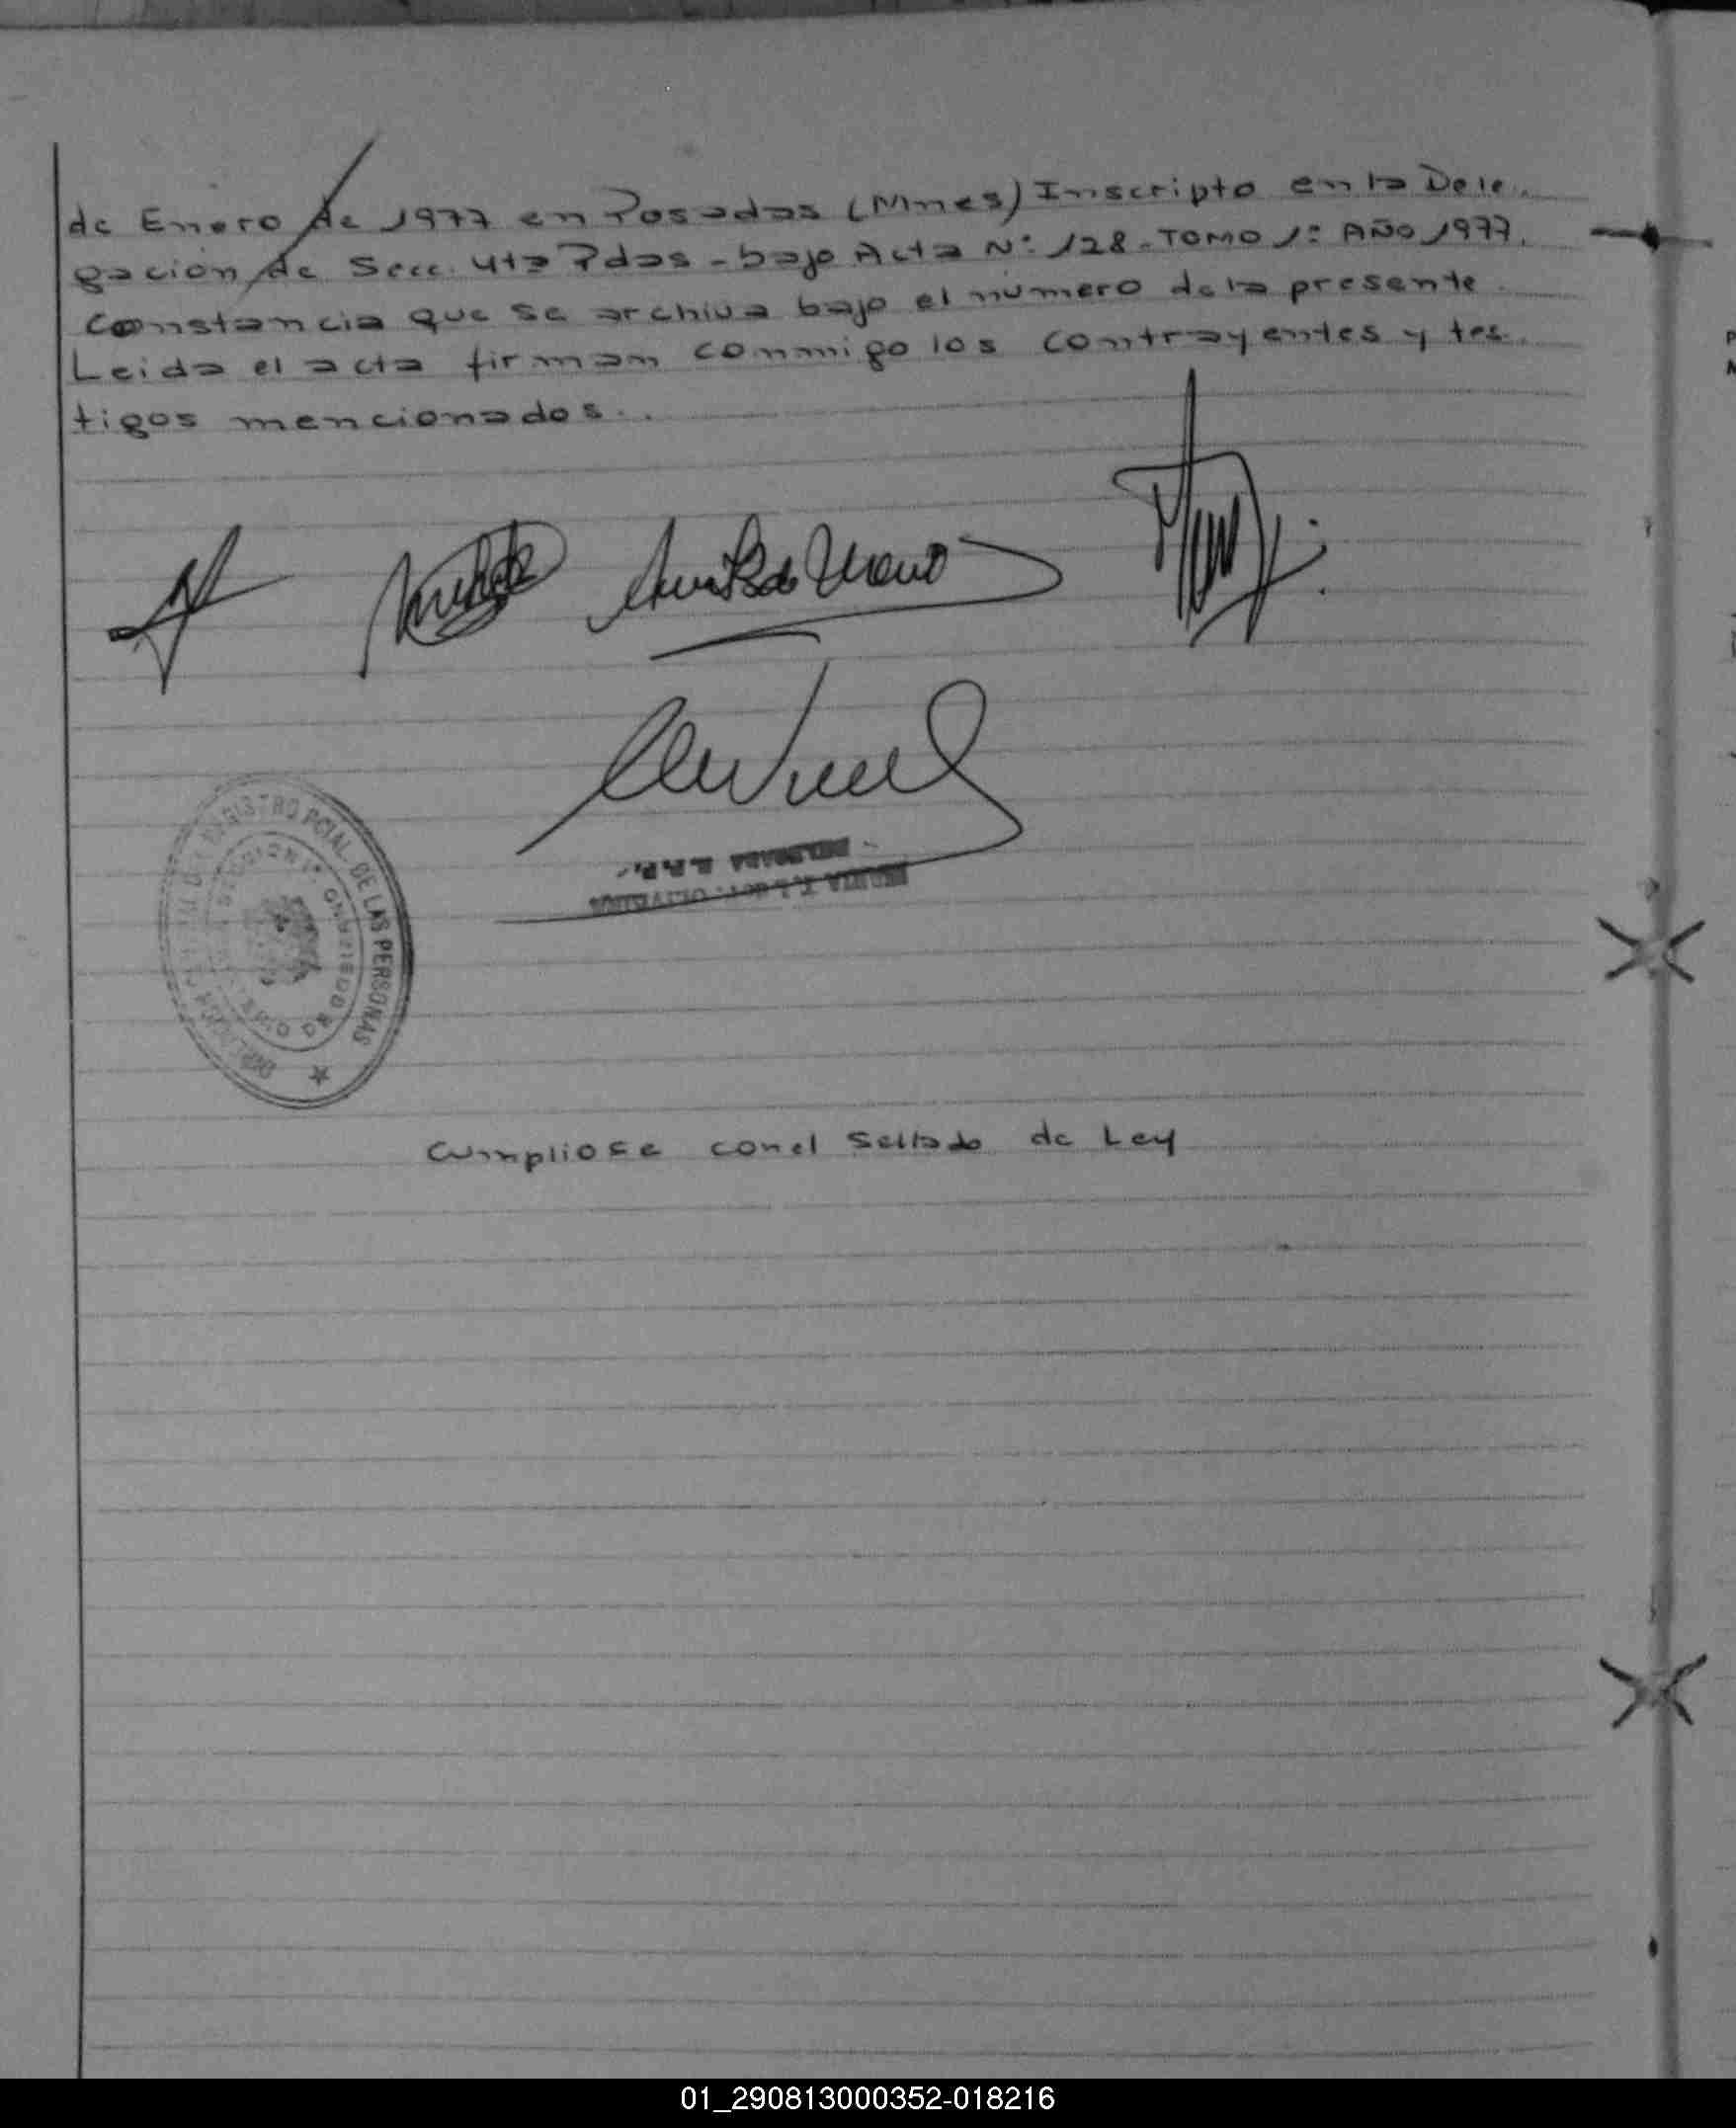 de Enero de 1977 en Posadas (Mnes) Inscripto en la Dele.
gación de Secc. 4ta Pdas - bajo Acta N: 128 - TOMO 1: AÑO 1977.
Constancia que se archiva bajo el número de la presente.
Leida el acta firman conmigo los contrayentes y tes.
tigos mencionados..
REGISTRO PCIAL. DE LAS PERSONAS
Cumpliose con el Sellado de Ley
01_290813000352-018216